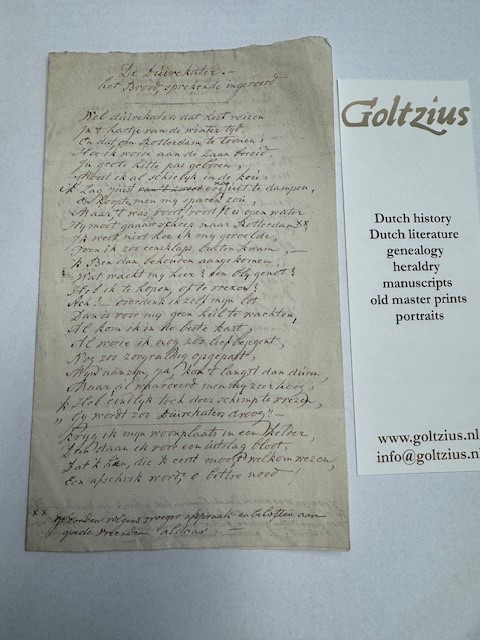 De Duivekater.—
het Brood, sprekende ingevoerd
Wel duivekaters dat heet reizen
In 't hartje van de winter tyd,
En dat om Rotterdam te toonen,
Hoe ik word aan de Zaan bereid.
In groote hitte pas geboren,
Moest ik al schielyk in de kou,
Ik lag juist nog wat uit te dampen,
En hoopte, men my sparen zou,
Maar 't was, voort, voort, 't is open water
Gy moet gaauw scheep naar Rotterdam xx,
Ik weet niet hoe ik my gevoelde,
Toen ik zoo eensklaps buiten kwam, —
'k Ben dan behouden aangekomen,
Wat wacht my hier? een bly genot?
Heb ik te hopen, of te vreezen?
Ach! — overdenk ik zelf myn lot
Dan is voor my geen heil te wachten,
Al kom ik in de beste kast,
Al worde ik nog zoo lief bejegent,
Nog zoo zorgvuldig opgepast,
Myn aanzyn, ja, kan 't langst dan duren,
Maar, al waardeerd men my zeer hoog,
'k Heb eindlyk toch deez' schimp te vreezen,
„Gy wordt zoo Duivekaters droog"! —
Kryg ik myn woonplaats in een kelder,
Dan staan ik voor een uitslag bloot,
Dat ik hen, die ik eerst mogt welkom wezen,
Een afschrik word, o bittre nood!
xx gezonden volgens vroeger afspraak en beloften aan
goede vrienden aldaar
Goltzius
Dutch history
Dutch literature
genealogy
heraldry
manuscripts
old master prints
portraits
www.goltzius.nl
info@goltzius.nl